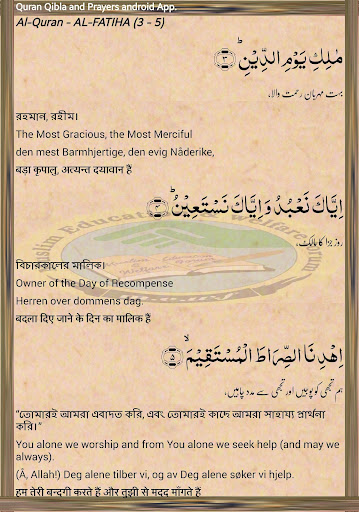 Quran Qibla and Prayers android App.
Al-Quran - AL-FATIHA (3 - 5)
مٰلِكِ يَوْمِ الدِّيْنِؕ ﴿۳﴾
بہت مہربان رحمت والا،
রহমান, রহীম।
The Most Gracious, the Most Merciful
den mest Barmhjertige, den evig Nåderike,
बड़ा कृपालु, अत्यन्त दयावान हैं
اِيَّاكَ نَعْبُدُ وَاِيَّاكَ نَسْتَعِيْنُؕ ﴿۴﴾
روز جزا کا مالک،
বিচারকালের মালিক।
Owner of the Day of Recompense
Herren over dommens dag.
बदला दिए जाने के दिन का मालिक हैं
اِهْدِنَا الصِّرَاطَ الْمُسْتَقِيْمَۙ ﴿۵﴾
ہم تجھی کو پوجیں اور تجھی سے مدد چاہیں،
“তোমারই আমরা এবাদত করি, এবং তোমারই কাদে আমরা সাহায্য প্রার্থনা
করি।”
You alone we worship and from You alone we seek help (and may we
always).
(Å, Allah!) Deg alene tilber vi, og av Deg alene søker vi hjelp.
हम तेरी बन्दगी करते हैं और तुझी से मदद माँगते हैं